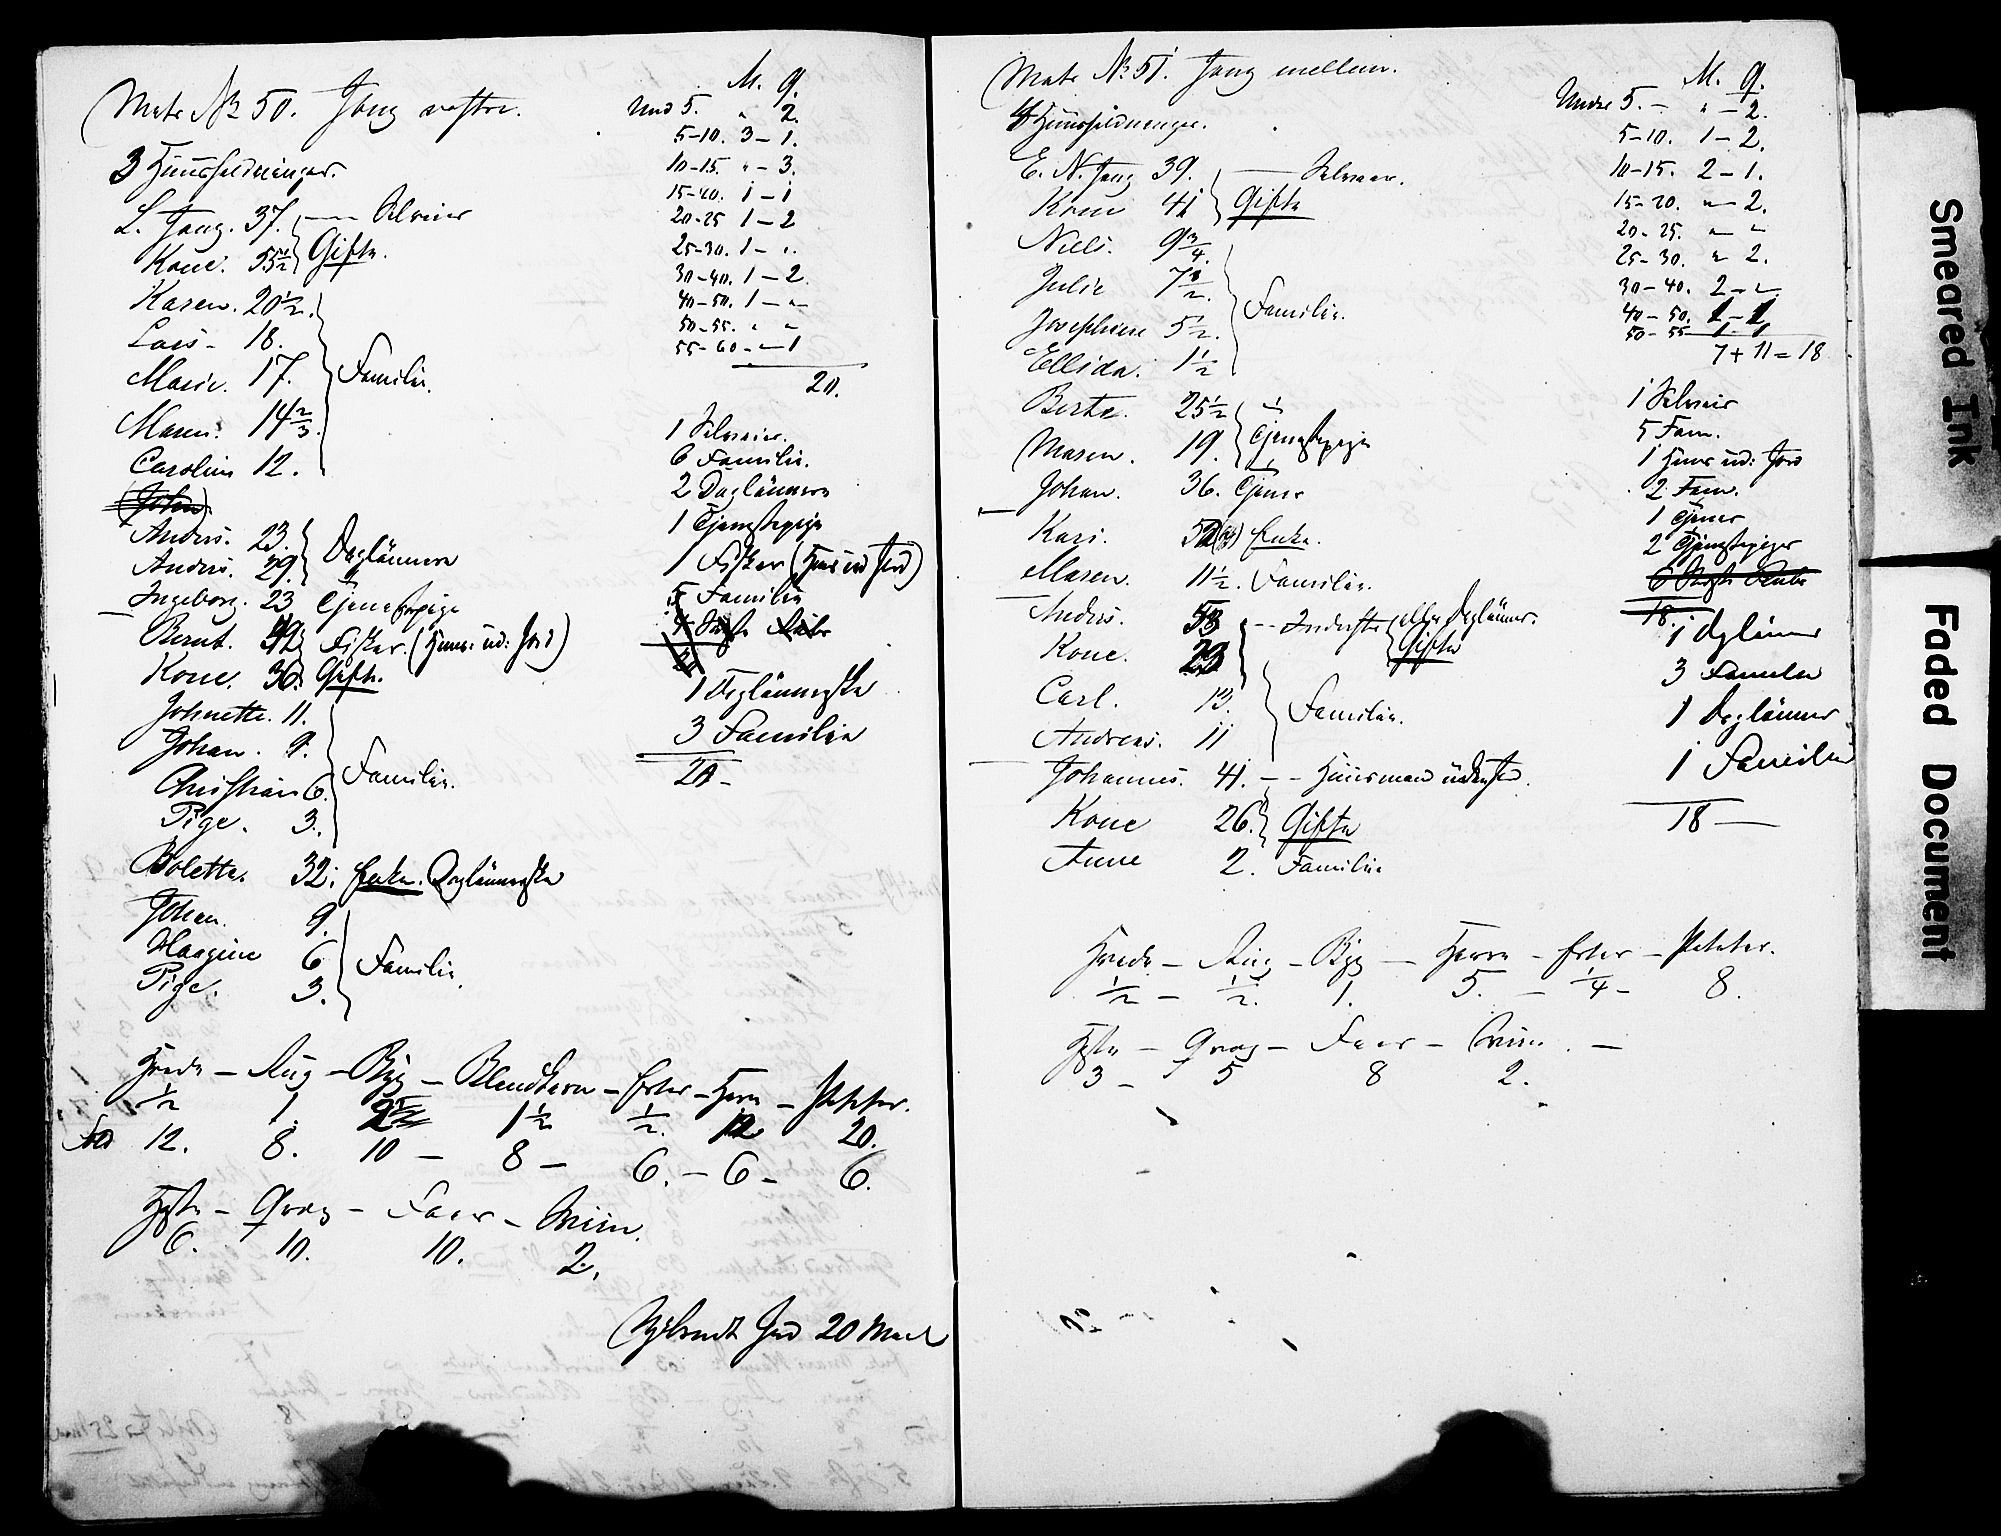 Matr № 50. Jong vestre.
3 Huusholdninger.
L. Jong. 37. — Selveier
Kone. 55½ Gifte.
Karen. 20½.
Lars - 18.
Marie. 17. Familie.
Maren. 14⅔.
Caroline 12.
(Johan)
Anders. 23.
Anders. 29. Daglønnere
Ingeborg. 23 Tjenestepige
Bernt. 42 Fisker. (Huus ud: Jord)
Kone. 36. Gifte.
Johnette. 11.
Johan. 9.
Christian 6. Familie.
Pige. 3.
Bolette. 32. Enke. Daglønnerske
Johan. 9.
Haagine 6 Familie.
Pige. 3.
M. Q.
Und 5. " 2.
5-10. 3 - 1.
10-15. " - 3.
15-20. 1 - 1
20-25 1 - 2
25-30. 1 - "
30-40. 1 - 2.
40-50. 1 - "
50-55. " "
55-60 - " 1
20.
1 Selveier.
6 Familie.
2 Daglønnere
1 Tjenestepige
1 Fisker (Huus ud Jord)
5 Familie
1 Daglønnerske
3 Familie
20 -
Hvede - Rug - Byg - Blandkorn - Erter - Havre - Poteter.
½ 1 2½ 1½ ½. 12 20.
Fold 12. 8. 10 - 8 - 6. - 6 - 6.
Heste - Qvæg - Faar - Sviin.
6. 10. 10. 2.
Udsaadt Jord 20 Maal
Matr № 51. Jong mellem.
4 Huusholdninger.
E. N. Jong 39. — Selveier.
Kone 41 Gifte
Niels. 9¾.
Julie 7½.
Josephine 5½. Familie.
Ellida. 1½
Berte. 25½
Maren. 19. Tjenestepige
Johan. 36. Tjener
Kari. 52 Enke.
Maren. 11½. Familie.
Anders. 53 -- Inderste eller Daglønner.
Kone. 23 Gifte
Carl. 13.
Andreas. 11 Familie.
Johannes. 41. - - Huusmand uden Jord.
Kone 26. Gifte
Anne 2. Familie
M. Q.
Under 5. - " - 2.
5-10. 1 - 2.
10-15. 2 - 1.
15-20. " - 2.
20-25. " - "
25-30. " 2.
30-40. 2 - "
40-50. 1 - 1
50-55 1 1
7 + 11 = 18
1 Selveier
5 Fam.
1 Huus ud: Jord
2 Fam.
1 Tjener
2 Tjenestepiger
18.
1 Dglønner
3 Familie
1 Daglønner
1 Familie
18 —
Hvede - Rug - Byg - Havre - Erter - Poteter.
½ - ½. 1. 5. - ¼ - 8.
Heste - Qvæg - Faar - Sviin. -
3 - 5 8 2.
Smeared Ink
Faded Document